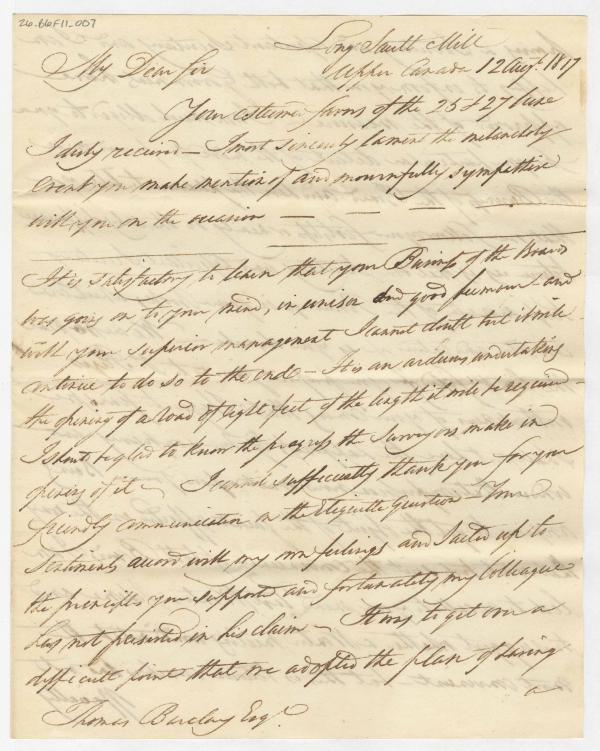 26.66F11_007
Long Sault Mill
My Dear Sir Upper Canada 12 Augt. 1817
Your esteemed favors of the 25 & 27 June
I duly received – I most sincerely lament the melancholy
event you make mention of and mournfully sympathise
with you on the occasion — — — —
It is satisfactory to learn that your Business of the Board
was going on to your mind, in unison and good humour and
with your superior management I cannot doubt but it will
continue to do so to the end – It is an arduous undertaking
the opening of a road of eight feet of the length it will be required –
I shall be glad to know the progress the surveyors make in
opening of it – I cannot sufficiently thank you for your
friendly communication on the Etiquette Question – Your
sentiments accord with my own feelings and I acted up to
the principles you support and fortunately my Colleague
has not persisted in his claim – It was to get over a
difficult point that we adopted the plan of having
a
Thomas Barclay Esqr.